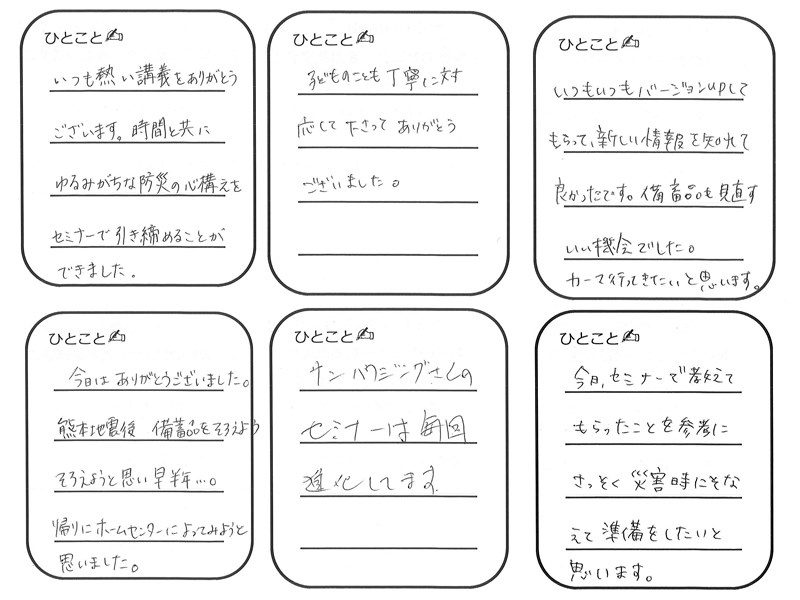 ひとこと
いつも熱い講義をありがとう
ございます。時間と共に
ゆるみがちな防災の心構えを
セミナーで引き締めることが
できました。
ひとこと
子どものことも丁寧に対
応して下さって ありがとう
ございました。
ひとこと
いつもいつもバージョンupして
もらって、新しい情報を知れて
良かったです。備蓄品も見直す
いい機会でした。
カーマ行ってきたいと思います。
ひとこと
今日は ありがとうございました。
熊本地震後 備蓄品をそろえよう
そろえようと思い早半年…。
帰りにホームセンターによってみようと
思いました。
ひとこと
サンハウジングさんの
セミナーは毎回
進化してます。
ひとこと
今日、セミナーで教えて
もらったことを参考に
さっそく 災害時にそな
えて 準備をしたいと
思います。